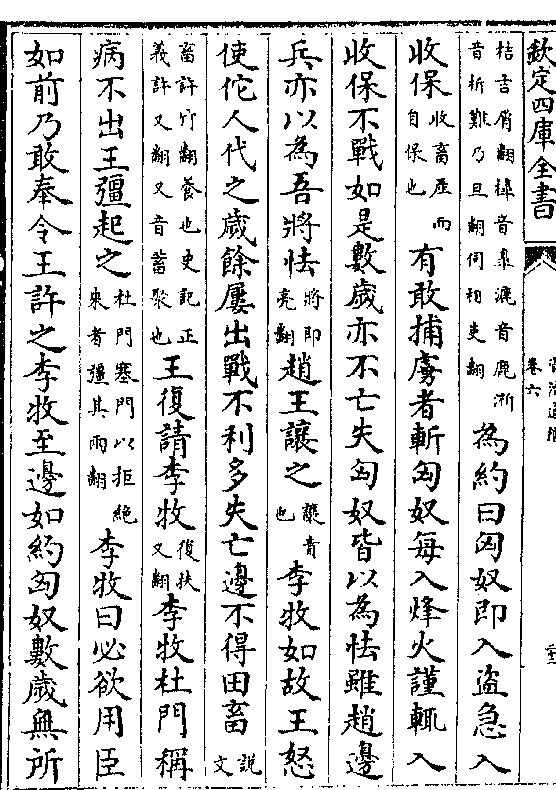 欽定四庫全書
卷六
桔吉屑翻橰音皋漉音鹿淅音析難乃旦翻伺相吏翻為約曰匈奴即入盜急入
收保收畜產而自保也有敢捕虜者斬匈奴每入烽火謹輒入
收保不戰如是數歲亦不亡失匈奴皆以為怯雖趙邊
兵亦以為吾將怯將即亮翻趙王讓之讓責也李牧如故王怒
使佗人代之歲餘屢出戰不利多失亡邊不得田畜說文
畜許竹翻養也史記正義許又翻又音蓄聚也王復請李牧復扶又翻李牧杜門稱
病不出王彊起之杜門塞門以拒絕來者彊其兩翻李牧曰必欲用臣
如前乃敢奉令王許之李牧至邊如約匈奴數歲無所